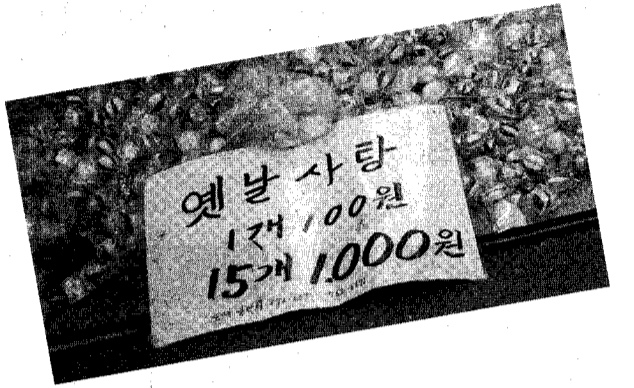 옛날사탕
1개 100원
15개 1.000원